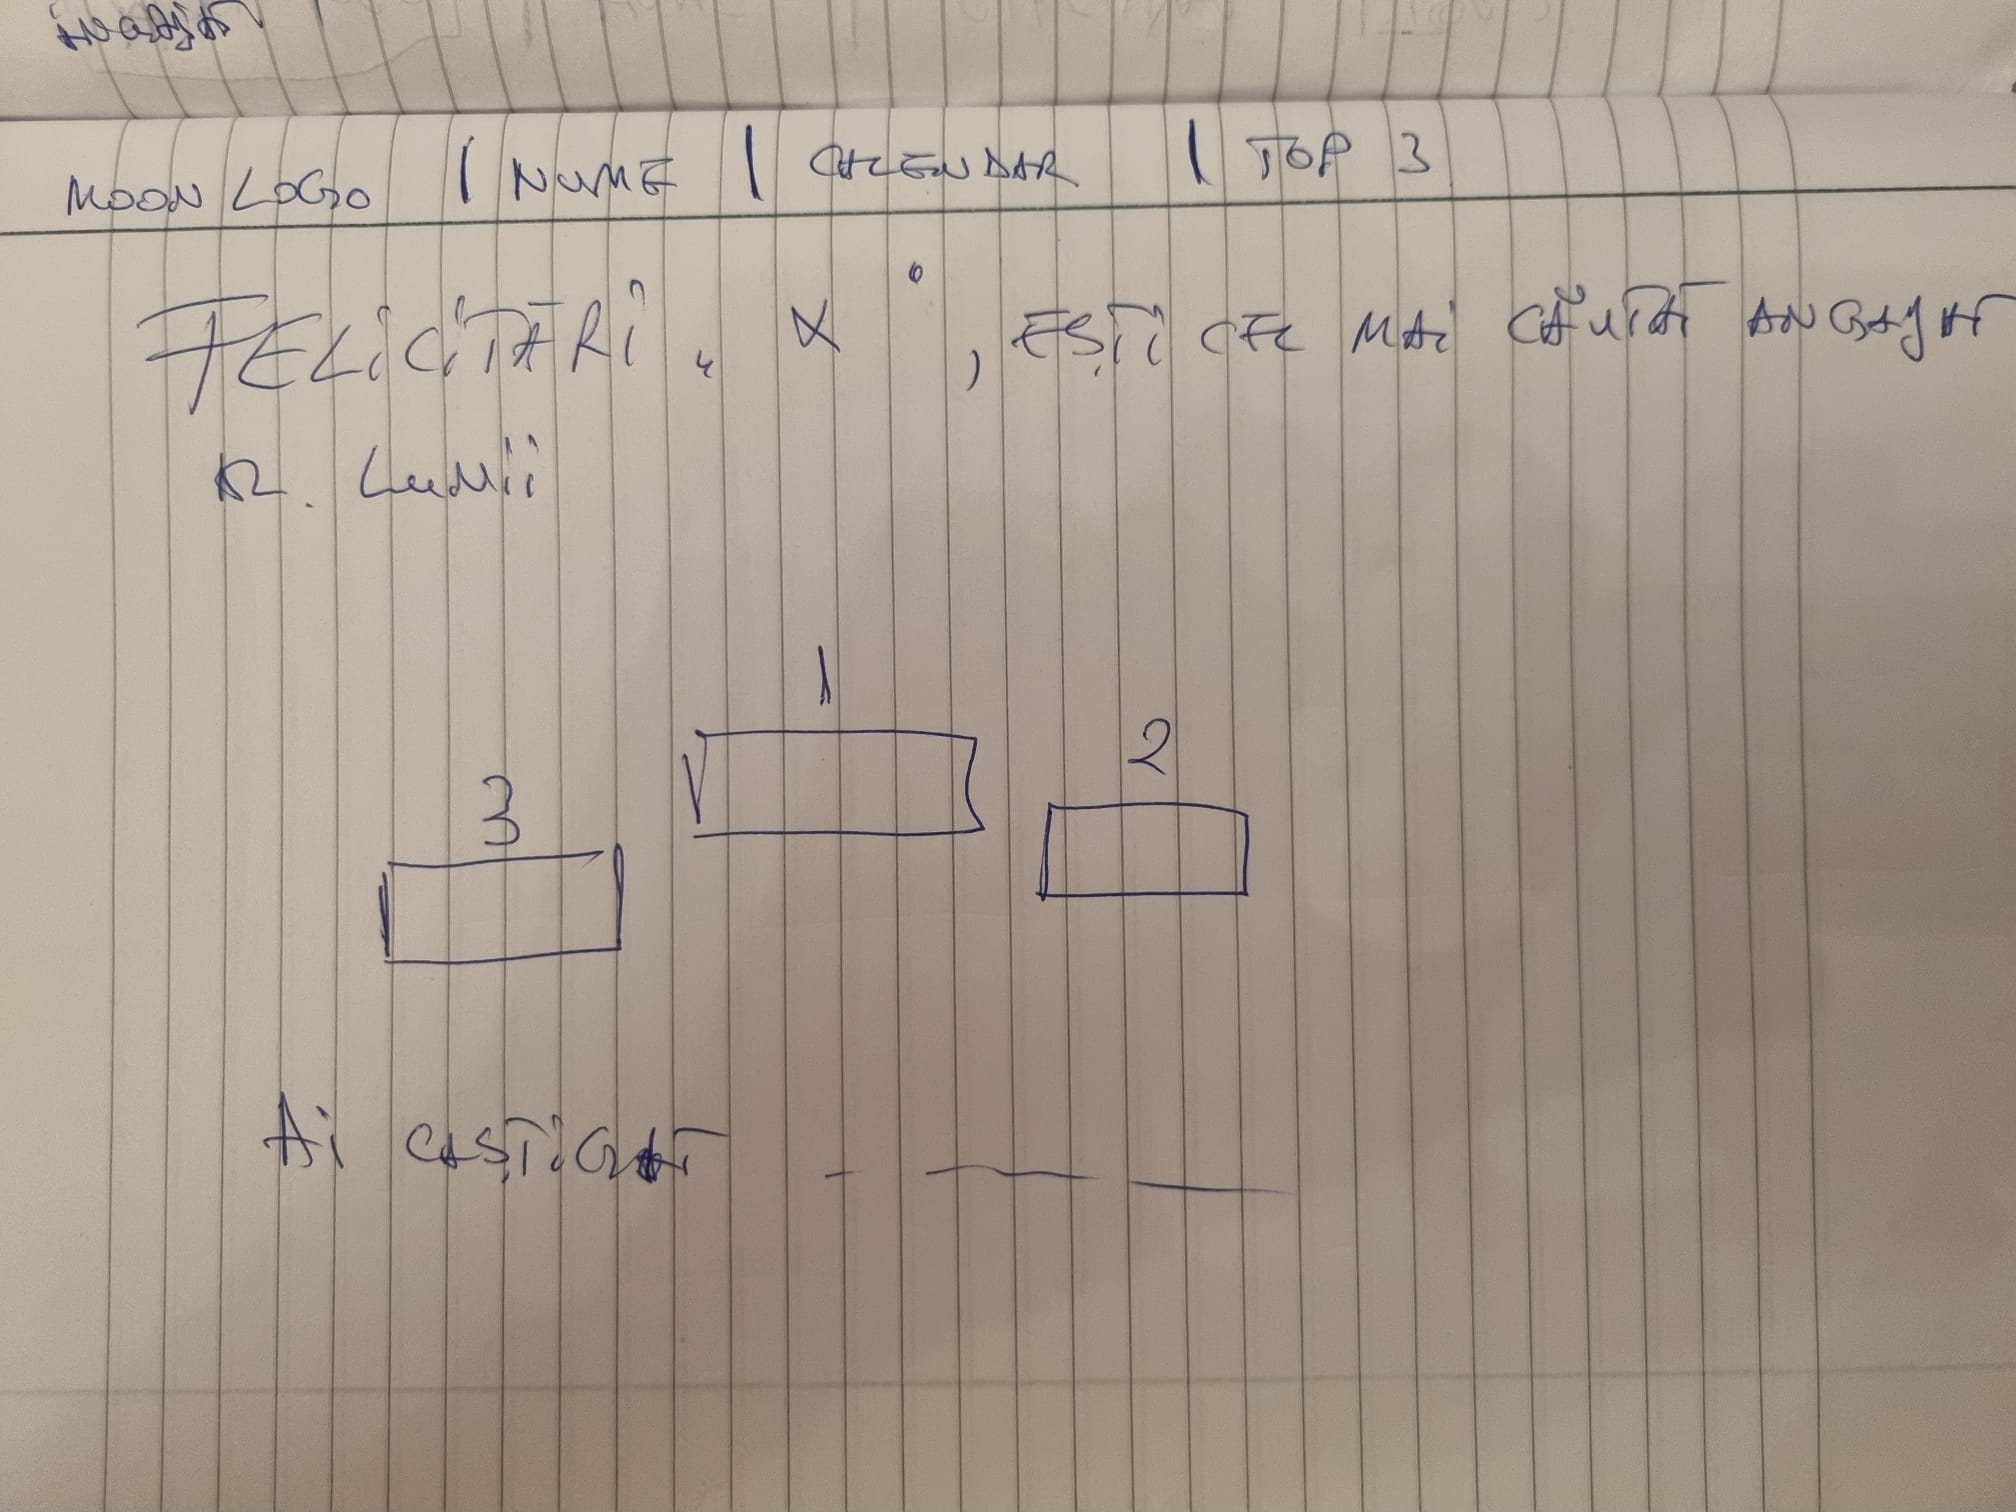 ANGAJAT
MOON LOGO | NUME | CALENDAR | TOP 3
FELICITĂRI, „X”, EȘTI CEL MAI CĂUTAT ANGAJAT
AL LUNII
1
2
3
AI CAȘTIGAT - — —